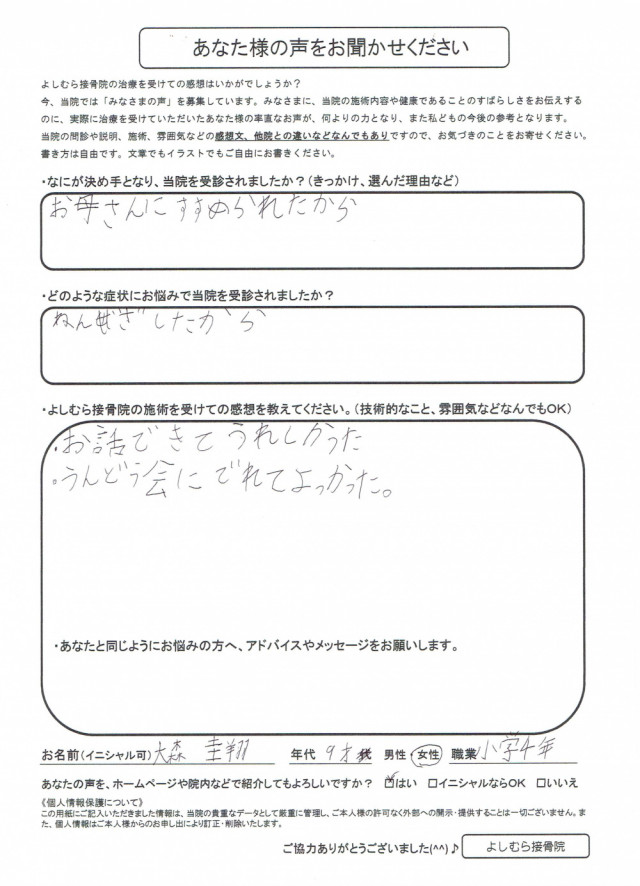 あなた様の声をお聞かせください
よしむら接骨院の治療を受けての感想はいかがでしょうか？
今、当院では「みなさまの声」を募集しています。みなさまに、当院の施術内容や健康であることのすばらしさをお伝えする
のに、実際に治療を受けていただいたあなた様の率直なお声が、何よりの力となり、また私どもの今後の参考となります。
当院の問診や説明、施術、雰囲気などの感想文、他院との違いなどなんでもありですので、お気づきのことをお寄せください。
書き方は自由です。文章でもイラストでもご自由にお書きください。
・なにが決め手となり、当院を受診されましたか？（きっかけ、選んだ理由など）
お母さんにすすめられたから
・どのような症状にお悩みで当院を受診されましたか？
ねんざしたから
・よしむら接骨院の施術を受けての感想を教えてください。（技術的なこと、雰囲気などなんでもOK）
・お話できてうれしかった
・うんどう会にでれてよっかった。
・あなたと同じようにお悩みの方へ、アドバイスやメッセージをお願いします。
お名前（イニシャル可） 大森 圭翔 年代 9才 男性・女性 職業 小学4年
あなたの声を、ホームページや院内などで紹介してもよろしいですか？ ☑はい □イニシャルならOK □いいえ
《個人情報保護について》
この用紙にご記入いただきました情報は、当院の貴重なデータとして厳重に管理し、ご本人様の許可なく外部への開示・提供することは一切ございません。ま
た、個人情報はご本人様からのお申し出により訂正・削除いたします。
ご協力ありがとうございました(^^)♪ よしむら接骨院